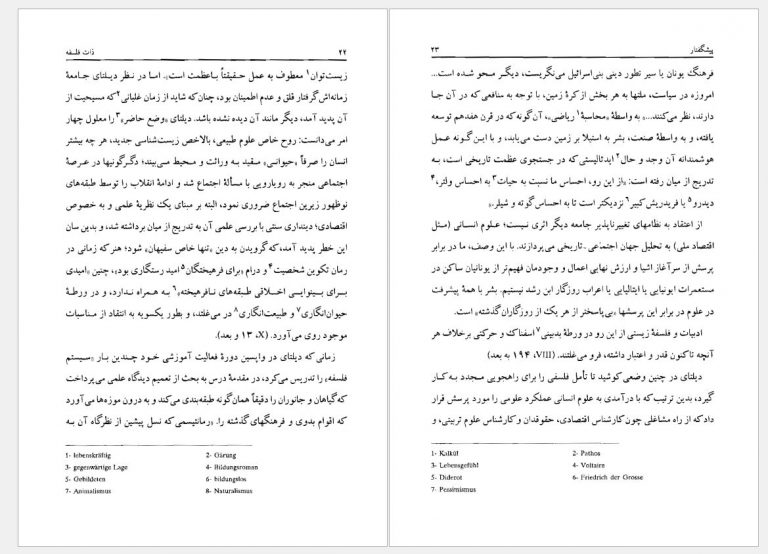 ۲۲
ذات فلسفه
زیست‌توان۱ معطوف به عمل حقیقتاً باعظمت است». اما در نظر دیلتای جامعهٔ
زمانه‌اش گرفتار قلق و عدم اطمینان بود، چنان‌که شاید از زمان غلیانی۲ که مسیحیت از
آن پدید آمد، دیگر مانند آن دیده نشده باشد. دیلتای «وضع حاضر»۳ را معلول چهار
امر می‌دانست: روح خاص علوم طبیعی، بالاخص زیست‌شناسی جدید، هر چه بیشتر
انسان را صرفاً «حیوانی» مقید به وراثت و محیط می‌بیند؛ دگرگونیها در عرصهٔ
اجتماعی منجر به رویارویی با مسألهٔ اجتماع شد و ادامهٔ انقلاب را توسط طبقه‌های
نوظهور زیرین اجتماع ضروری نمود، البته بر مبنای یک نظریهٔ علمی و به خصوص
اقتصادی؛ دینداری سنتی با بررسی علمی آن به تدریج از میان برداشته شد، و بدین سان
این خطر پدید آمد، که گرویدن به دین «تنها خاص سفیهان» شود؛ هنر که زمانی در
رمان تکوین شخصیت۴ و درام «برای فرهیختگان۵ امید رستگاری بود»، چنین «امیدی
برای بینوایی اخلاقی طبقه‌های نافرهیخته»۶ به همراه ندارد، و در ورطهٔ
حیوان‌انگاری۷ و طبیعت‌انگاری۸ در می‌غلتد، و بطور یکسویه به انتقاد از مناسبات
موجود روی می‌آورد. (X، ۱۳ و بعد).
زمانی که دیلتای در واپسین دورهٔ فعالیت آموزشی خود چندین بار «سیستم
فلسفه» را تدریس می‌کرد، در مقدمهٔ درس به بحث از تعمیم دیدگاه علمی می‌پرداخت
که گیاهان و جانوران را دقیقاً همان‌گونه طبقه‌بندی می‌کند و به درون موزه‌ها می‌آورد
که اقوام بدوی و فرهنگهای گذشته را. «رمانتیسمی که نسل پیشین از نظرگاه آن به
1- lebenskräftig
2- Gärung
3- gegenwärtige Lage
4- Bildungsroman
5- Gebildeten
6- bildungslos
7- Animalismus
8- Naturalismus
پیشگفتار
۲۳
فرهنگ یونان یا سیر تطور دینی بنی‌اسرائیل می‌نگریست، دیگر محو شده است...
امروزه در سیاست، ملتها به هر بخش از کرهٔ زمین، با توجه به منافعی که در آن جا
دارند، نظر می‌کنند...» به واسطهٔ «محاسبهٔ۱ ریاضی»، آن‌گونه که در قرن هفدهم توسعه
یافته، و به واسطهٔ صنعت، بشر به استیلا بر زمین دست می‌یابد، و با این‌گونه عمل
هوشمندانه آن وجد و حال۲ ایدئالیستی که در جستجوی عظمت تاریخی است، به
تدریج از میان رفته است: «از این رو، احساس ما نسبت به حیات۳ به احساس ولتر،۴
دیدرو۵ یا فریدریش کبیر۶ نزدیکتر است تا به احساس گوته و شیلر.»
از اعتقاد به نظامهای تغییرناپذیر جامعه دیگر اثری نیست؛ علوم انسانی (مثل
اقتصاد ملی) به تحلیل جهان اجتماعی ـ تاریخی می‌پردازند. با این وصف، «ما در برابر
پرسش از سرآغاز اشیا و ارزش نهایی اعمال و وجودمان فهیم‌تر از یونانیان ساکن در
مستعمرات ایونیایی یا ایتالیایی یا اعراب روزگار ابن رشد نیستیم. بشر با همهٔ پیشرفت
در علوم در برابر این پرسشها «بی‌پاسختر از هر یک از روزگاران گذشته» است.
ادبیات و فلسفهٔ زیستی از این رو در ورطهٔ بدبینی۷ اسفناک و حرکتی برخلاف هر
آنچه تاکنون قدر و اعتبار داشته، فرو می‌غلتند. (VIII، ۱۹۴ به بعد)
دیلتای در چنین وضعی کوشید تا تأمل فلسفی را برای راهجویی مجدد به کار
گیرد، بدین ترتیب که با درآمدی به علوم انسانی عملکرد علومی را مورد پرسش قرار
داد که از راه مشاغلی چون کارشناس اقتصادی، حقوقدان و کارشناس علوم تربیتی، و
1- Kalkül
2- Pathos
3- Lebensgefühl
4- Voltaire
5- Diderot
6- Friedrich der Grosse
7- Pessimismus